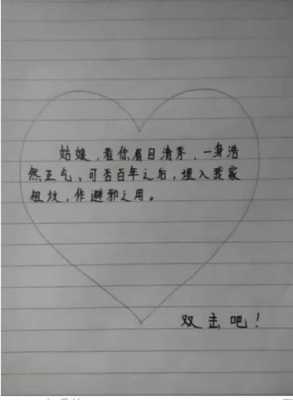 姑娘，看你眉目清秀，一身浩
然正气，可否百年之后，埋入我家
祖坟，作避邪之用。
双击吧！